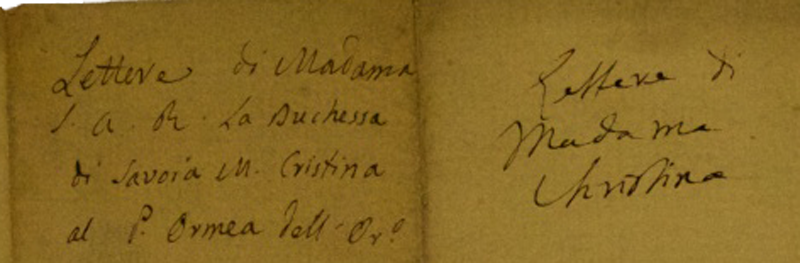 Lettere di Madama
S. A. R. La Duchessa
di Savoia M. Cristina
al P. Ormea dell'Or.º
Lettere di
Madama
Christina